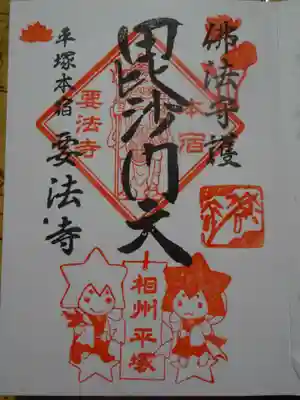 佛法守護
毘沙門天
本宿
要法寺
平塚本宿 要法寺
相州平塚